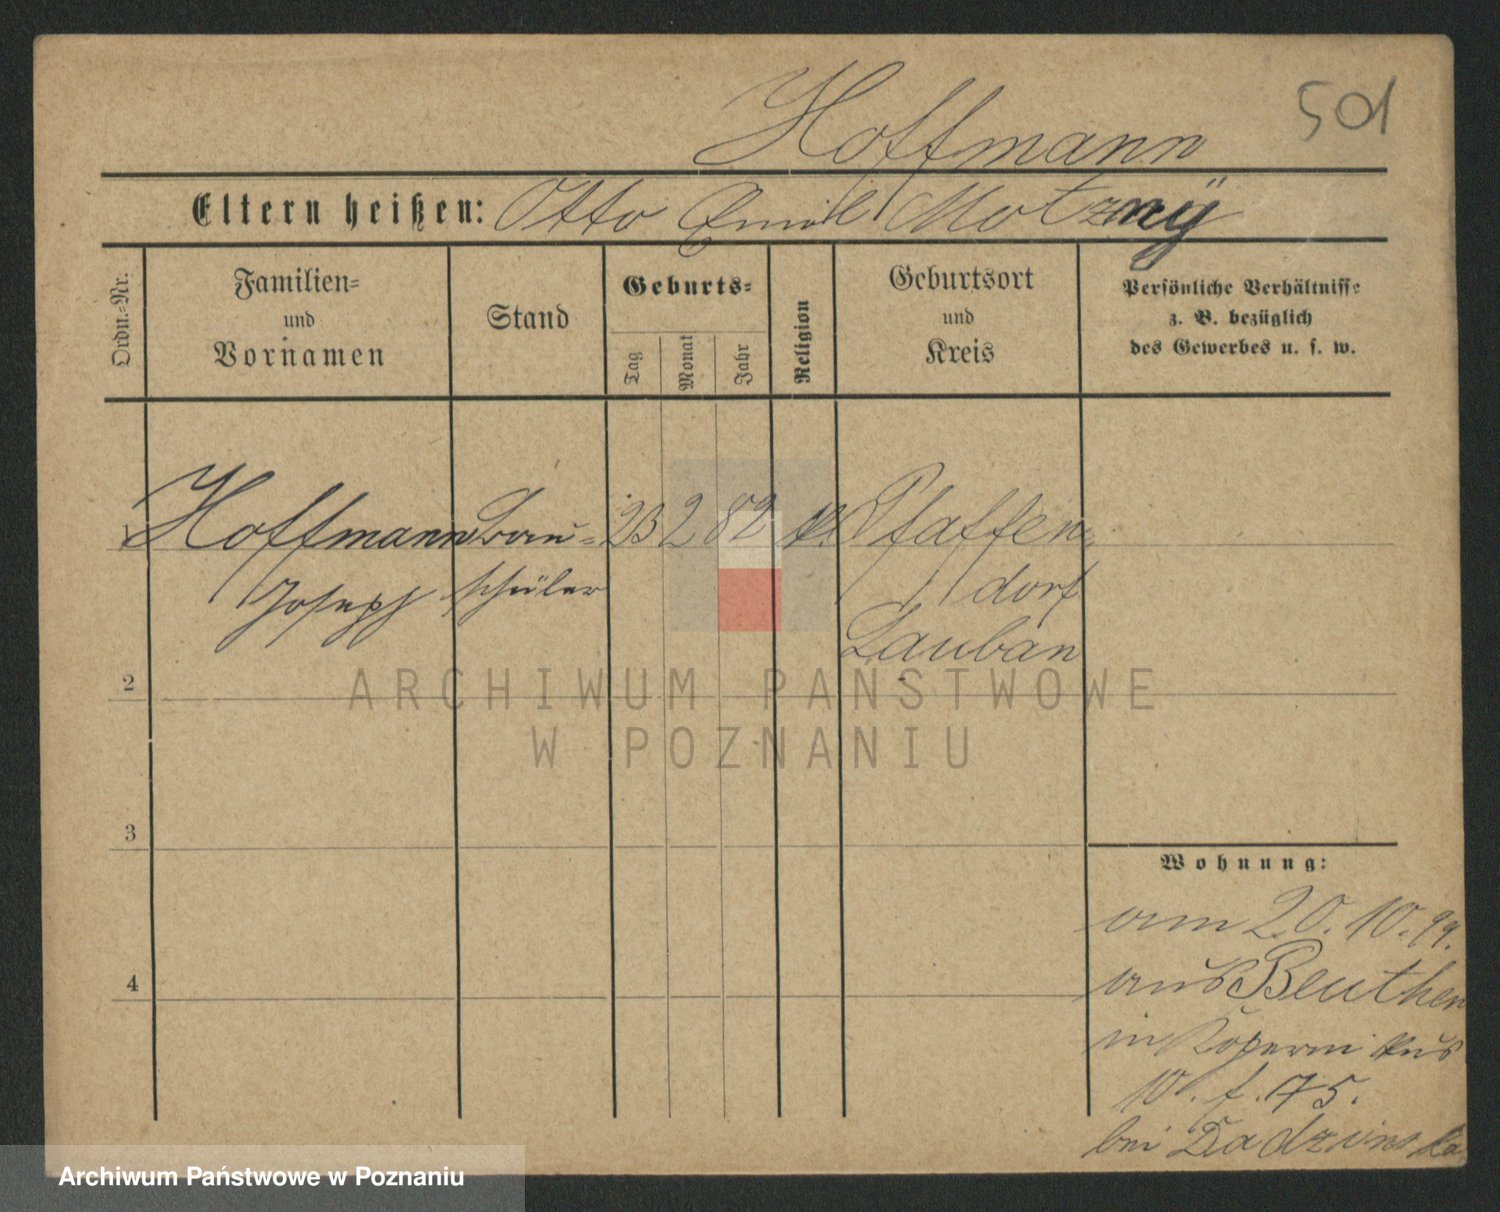 Hoffmann
501
Eltern heißen: Otto Emil Motzny
Ordn.-Nr.
Familien-
und
Vornamen
Stand
Geburts-
Tag
Monat
Jahr
Religion
Geburtsort
und
Kreis
Persönliche Verhältnisse
z. B. bezüglich
des Gewerbes u. s. w.
1 Hoffmann Bau- 23 2 82 Pfaffen-
Joseph schüler dorf
Lauban
2
ARCHIWUM PAŃSTWOWE
W POZNANIU
3
Wohnung:
am 20.10.99.
4
aus Beuthen
in Kopernikus
10. f. 75.
bei Dadzinska
Archiwum Państwowe w Poznaniu